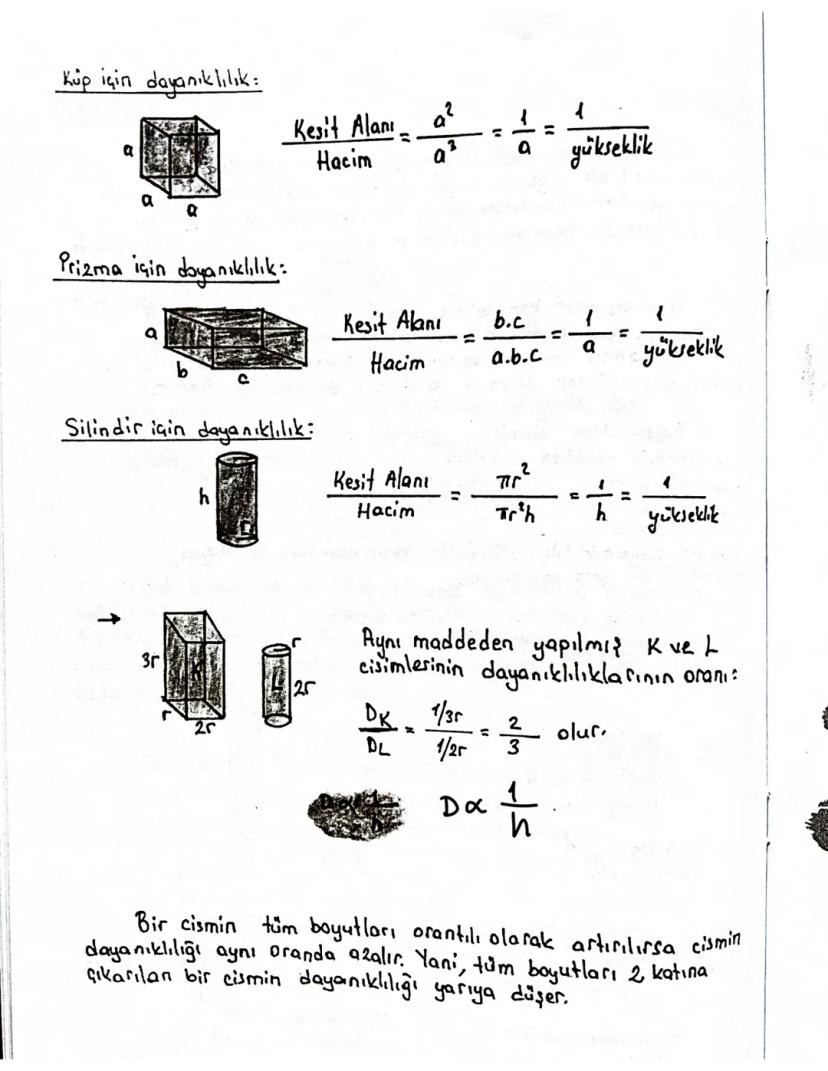 Küp için dayanıklılık:
a
a
a
Kesit Alanı / Hacim = a² / a³ = 1 / a = 1 / yükseklik
Prizma için dayanıklılık:
a
b
c
Kesit Alanı / Hacim = b.c / a.b.c = 1 / a = 1 / yükseklik
Silindir için dayanıklılık:
h
r
Kesit Alanı / Hacim = πr² / πr²h = 1 / h = 1 / yükseklik
→
3r
K
r
2r
L
r
2r
Aynı maddeden yapılmış K ve L
cisimlerinin dayanıklılıklarının oranı:
DK / DL = 1/3r / 1/2r = 2 / 3 olur.
D ∝ 1 / h
Bir cismin tüm boyutları orantılı olarak artırılırsa cismin
dayanıklılığı aynı oranda azalır. Yani, tüm boyutları 2 katına
çıkarılan bir cismin dayanıklılığı yarıya düşer.